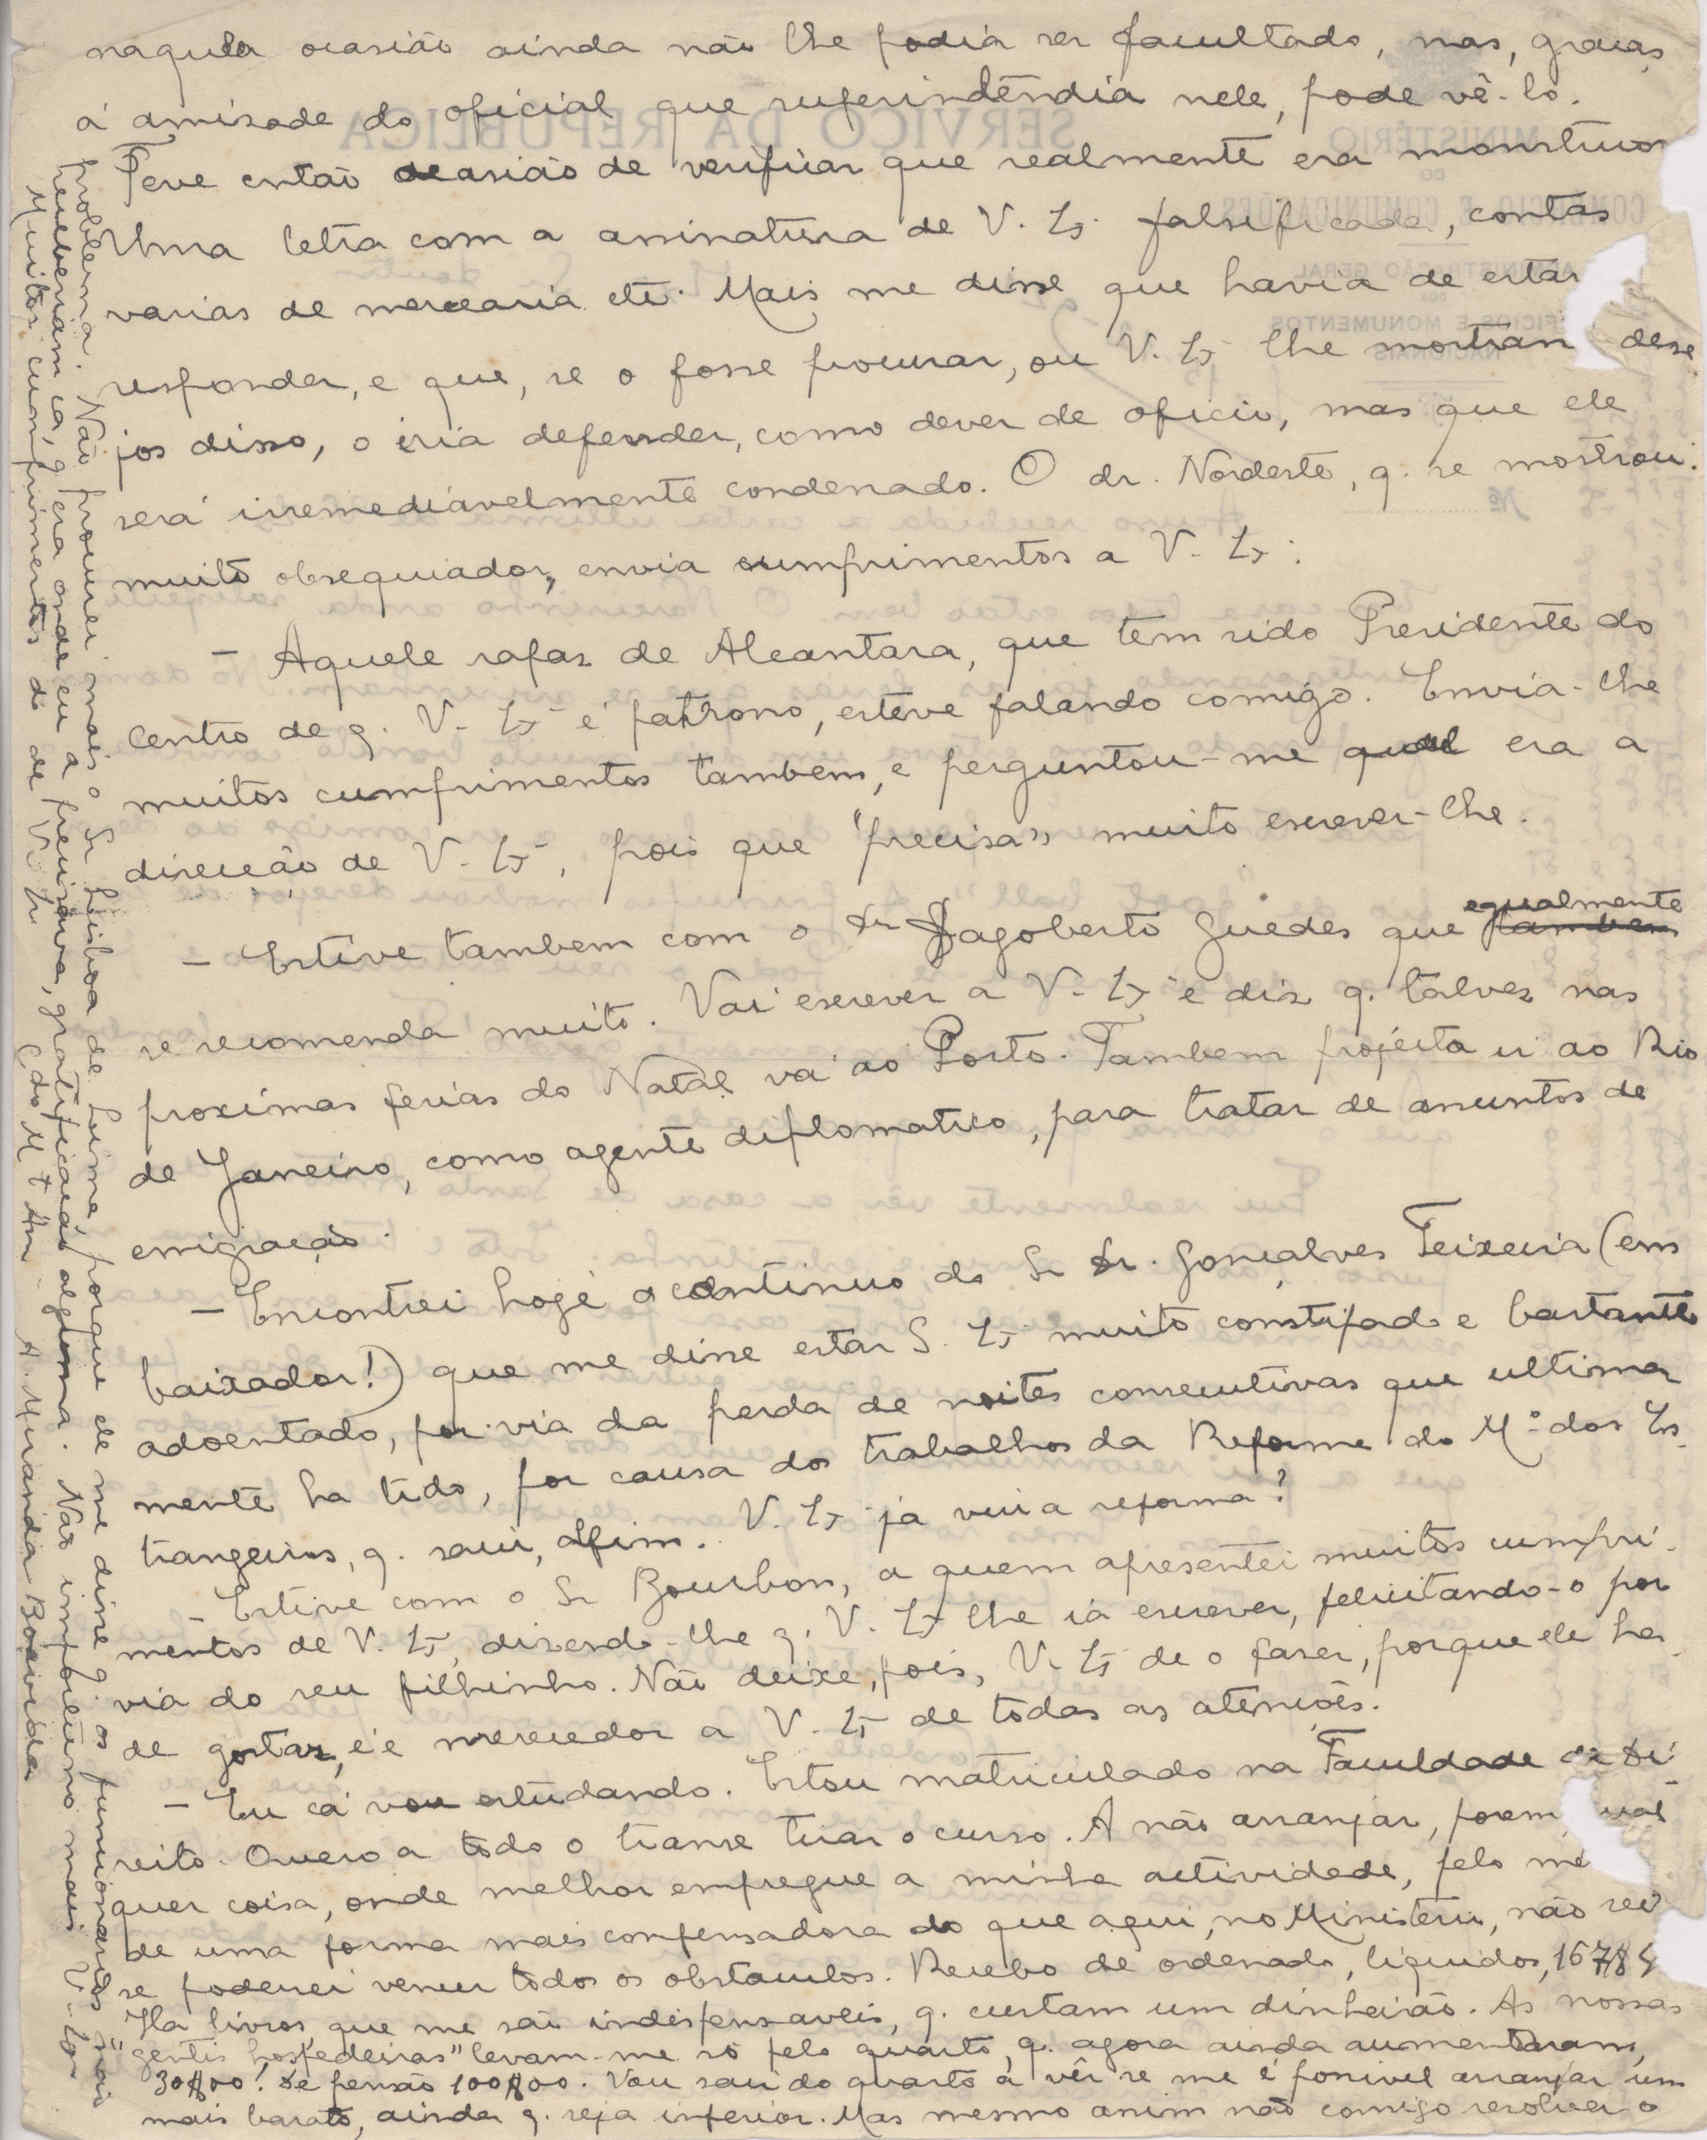 naquela ocasião ainda não lhe podia ser facultado, mas, graças
á amisade do oficial que superintendia nele, pode vê-lo.
Teve então ocasião de verificar que realmente era monstruos
Uma letra com a assinatura de V. Ex. falsificada, contas
varias de mercearia etc. Mais me disse que havia de estar
responder, e que, se o fosse procurar, ou V. Ex. lhe mostran dese
jos disso, o iria defender, como dever de oficio, mas que ele
será irremediavelmente condenado. O dr. Nordeste, q. se mostrou
muito obsequiador, envia cumprimentos a V. Ex.
- Aquele rapaz de Alcantara, que tem sido Presidente do
Centro de q. V. Ex é patrono, esteve falando comigo. Envia-lhe
muitos cumprimentos tambem, e perguntou-me qual era a
direcção de V. Ex, pois que "precisa" muito escrever-lhe.
- Estive tambem com o dr Dagoberto Guedes que egualmente
se recomenda muito. Vai escrever a V. Ex e diz q. talvez nas
proximas ferias do Natal vá ao Porto. Tambem projecta ir ao Rio
de Janeiro, como agente diplomatico, para tratar de assuntos de
emigração.
- Encontrei hoje o continuo do Sr dr. Gonçalves Teixeira (em
baixador!) que me disse estar S. Ex muito constipado e bastante
adoentado, por via da perda de noites consecutivas que ultima
mente ha tido, por causa dos trabalhos da Reforma do M.º dos Es-
trangeiros, q. saiu, afim. V. Ex já viu a reforma?
- Estive com o Sr Bourbon, a quem apresentei muitos cumpri-
mentos de V. Ex, dizendo-lhe q. V. Ex lhe ia escrever, felicitando-o por
via do seu filhinho. Não deixe, pois, V. Ex de o fazer, porque ele ha
de gostar, e é merecedor a V. Ex de todas as atenções.
- Eu cá vou estudando. Estou matriculado na Faculdade de Di-
reito. Quero a todo o transe tirar o curso. A não arranjar, porem, qual
quer coisa, onde melhor empregue a minha actividade, pelo me
de uma forma mais compensadora do que aqui, no Ministerio, não sei
se poderei vencer todos os obstaculos. Recebo de ordenado, liquidos, 167$
Ha livros, que me são indispensaveis, q. custam um dinheirão. As nossas
"gentis hospedeiras" levam-me só pelo quarto, q. agora ainda aumentaram,
30$00! De pensão 100$00. Vou sair do quarto a vêr se me é possivel arranjar um
mais barato, ainda q. seja inferior. Mas mesmo assim não consigo resolver o
problema. Não procurei mais o Sr Lisboa de Lima, porque ele me disse q. os funcionarios não
receberiam ca, q. era onde eu a precisava, gratificação alguma. Não importuno mais V. Ex
Muitos cumprimentos do de V. Ex
C.do M.to Am.
A. Miranda Boavida